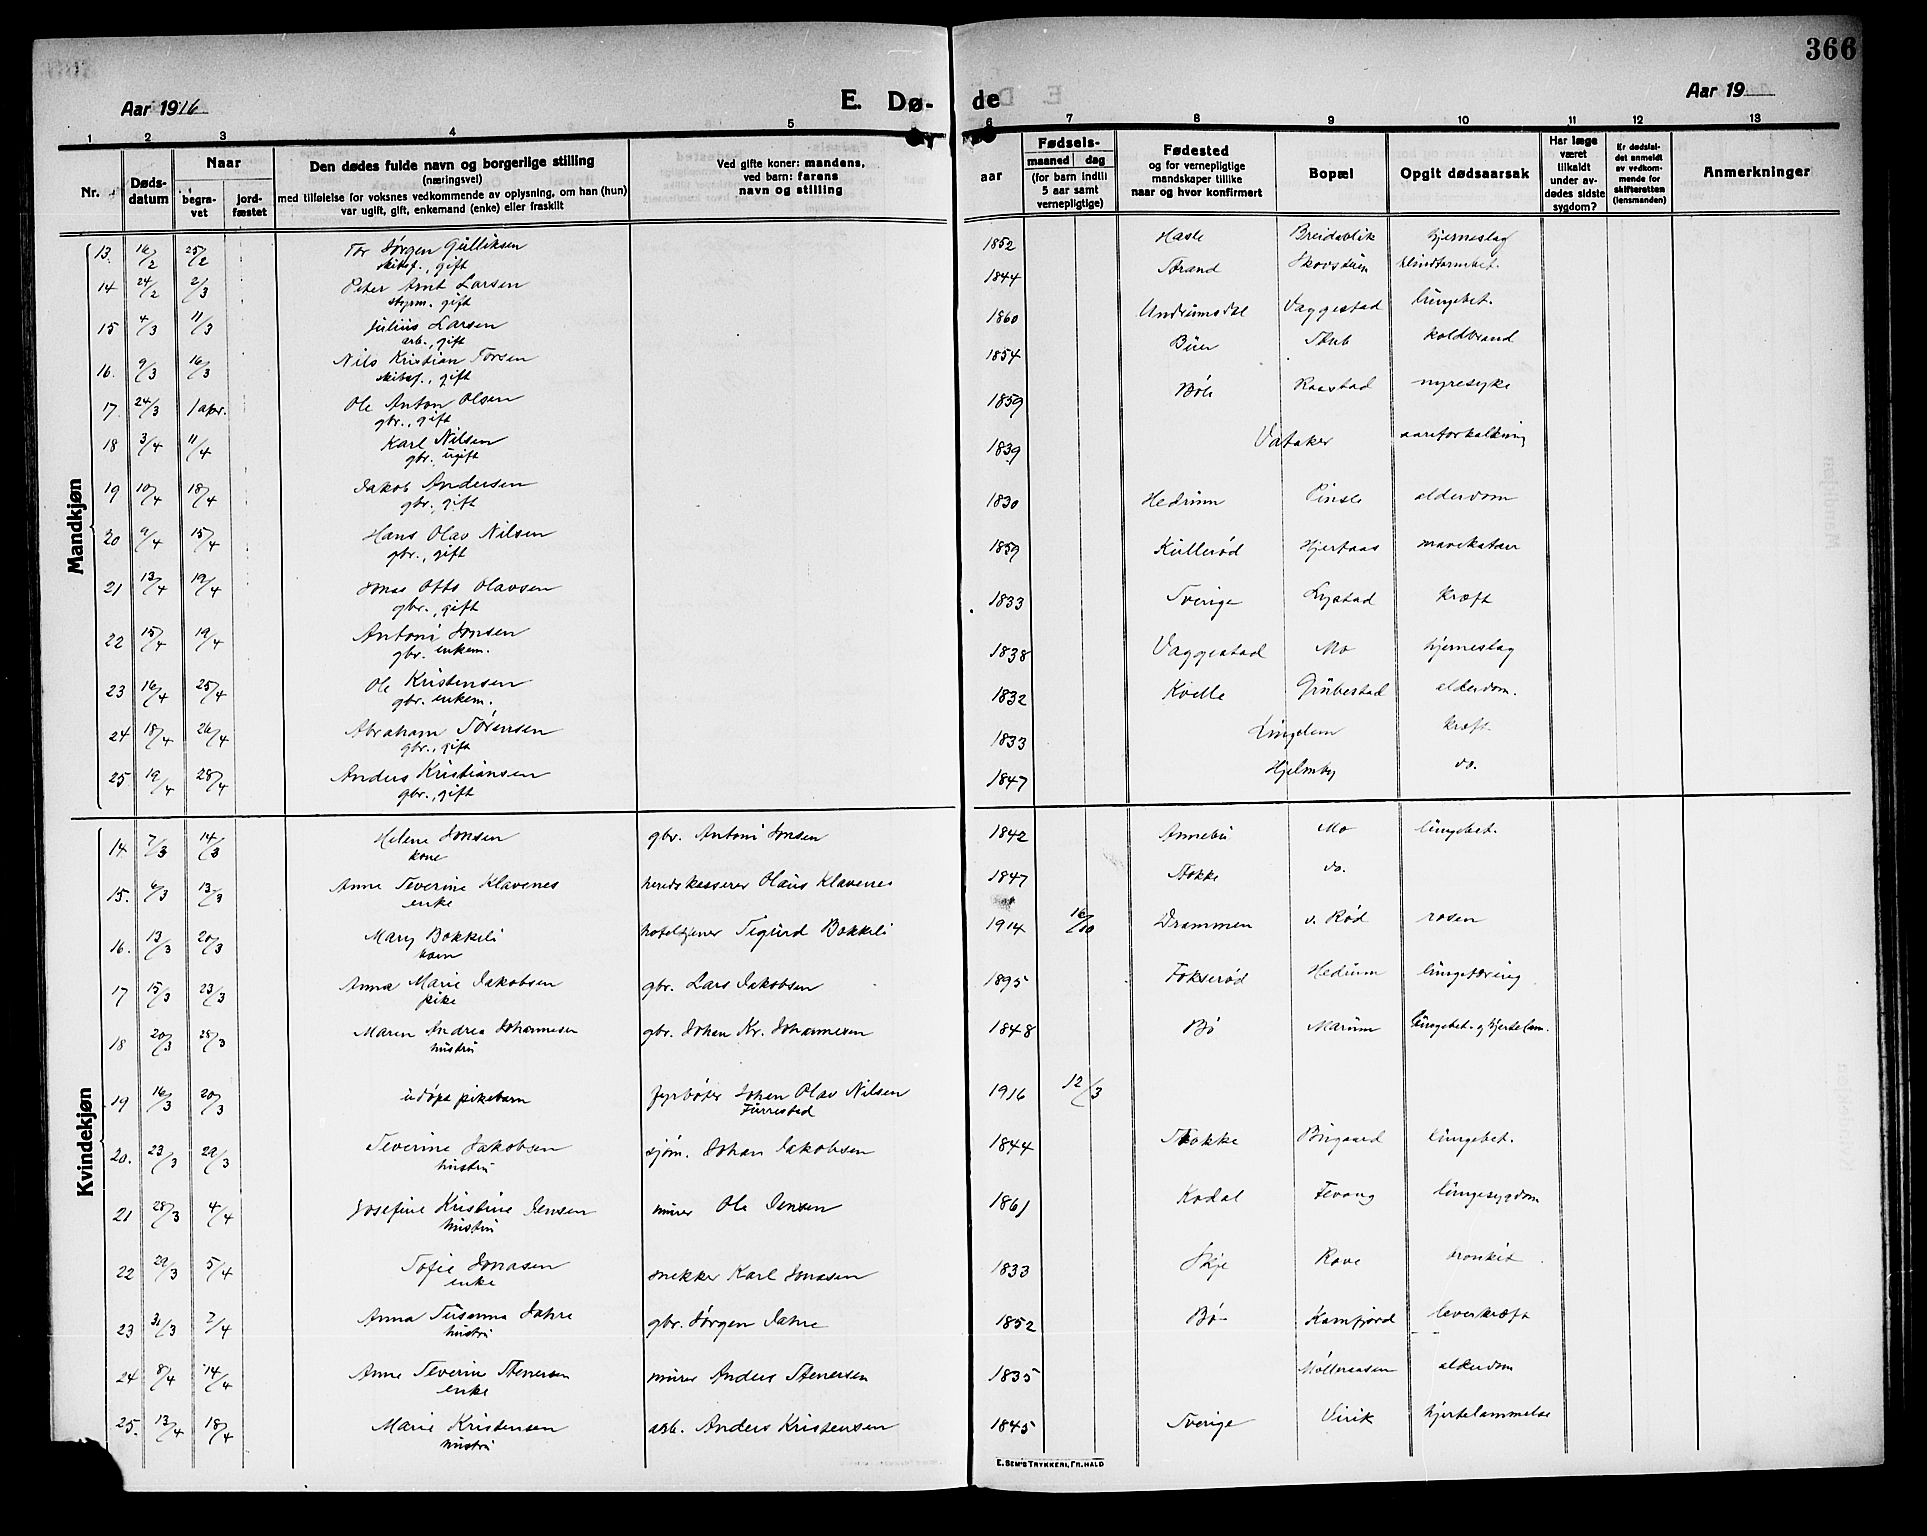 366
Aar 1916
E. Dø-
de
Aar 19
1 2 3 4 5 6 7 8 9 10 11 12 13
Nr.
Døds-datum
Naar
begra-vet
jord-fæstet
Den dødes fulde navn og borgerlige stilling
(næringsvei)
med tilføielse for voksnes vedkommende av oplysning, om han (hun)
var ugift, gift, enkemand (enke) eller fraskilt
Ved gifte koner: mandens,
ved barn: farens
navn og stilling
aar
Fødsels-
maaned dag
(for barn indtil
5 aar samt
vernepligtige)
Fødested
og for vernepligtige
mandskaper tillike
naar og hvor konfirmert
Bopæl
Opgit dødsaarsak
Har læge
været
tilkaldt
under av-
dødes sidste
sygdom?
Er dødsfal-
det anmeldt
av vedkom-
mende for
skifteretten
(lensmanden)
Anmerkninger
Mandkjøn
13. 16/2 25/2 Tor Jørgen Gulliksen 1852 Hasle Breidablik hjerneslag
skibsf., gift
14 24/2 2/3 Peter Amt Larsen 1844 Strand Skovsteen blindtarmbet.
styrm. gift
15 4/3 11/3 Julius Larsen 1860 Undrumsdal Vaggestad lungebet.
arb., gift
16. 9/3 16/3 Nils Kristian Torsen 1854 Buer Stub koldbrand
skibsf., gift
17. 24/3 1 apr. Ole Anton Olsen 1859 Bøle Raastad nyresyke
gbr., gift
18 3/4 11/4 Karl Nilsen 1839 Vataker aareforkalkning
gbr. ugift
19 10/4 18/4 Jakob Andersen 1830 Hedrum Pinsle alderdom
gbr., gift
20 9/4 15/4 Hans Olav Nilsen 1859 Kullerød Hjertaas mavekatar
gbr., gift
21 13/4 19/4 Jonas Otto Olavsen 1833 Sverige Lystad kræft
gbr., gift
22 15/4 19/4 Antoni Jonsen 1838 Vaggestad Mo hjerneslag
gbr. enkem.
23 16/4 25/4 Ole Kristensen 1832 Kvelle Grubestad alderdom.
gbr. enkem.
24 18/4 26/4 Abraham Sørensen 1833 Lingelem kræft.
gbr., gift
25 19/4 28/4 Anders Kristiansen 1847 Hjelmby do.
gbr., gift
Kvindekjøn
14 7/3 14/3 Helene Jonsen gbr. Antoni Jonsen 1842 Annebu Mo lungebet.
kone
15. 6/3 13/3 Anne Severine Klavenes heredskasserer Olaus Klavenes 1847 Stokke do.
enke
16. 13/3 20/3 Mary Bakkeli hoteltjener Sigurd Bakkeli 1914 16/10 Drammen v. Rød rosen
barn
17 15/3 23/3 Anna Marie Jakobsen gbr. Lars Jakobsen 1895 Fokserød Hedrum lungetæring
pike
18 20/3 28/3 Maren Andrea Johannesen gbr. Johan Kr. Johannesen 1848 Bø Marum lungebet. og hjertelam.
hustru
19 16/3 20/3 udøpt pikebarn fyrbøter Johan Olav Nilsen 1916 12/3
Furrestad
20. 23/3 29/3 Severine Jakobsen sjøm. Johan Jakobsen 1844 Stokke Bugaard lungebet.
hustru
21 28/3 4/4 Josefine Kristine Jensen murer Ole Jensen 1861 Kodal Fevang lungesygdom
hustru
22 29/3 5/4 Sofie Jonasen snekker Karl Jonasen 1833 Skje Rove bronkit
enke
23 31/3 7/4 Anna Susanna Jahre gbr. Jørgen Jahre 1852 Bø Kamfjord leverkræft
hustru
24 8/4 14/4 Anne Severin Stenersen murer Anders Stenersen 1835 Mølleraasen alderdom
enke
25. 13/4 18/4 Marie Kristensen arb. Anders Kristensen 1845 Sverige Virik hjertelammelse
hustru
E. SEM'S TRYKKERI, FR.HALD